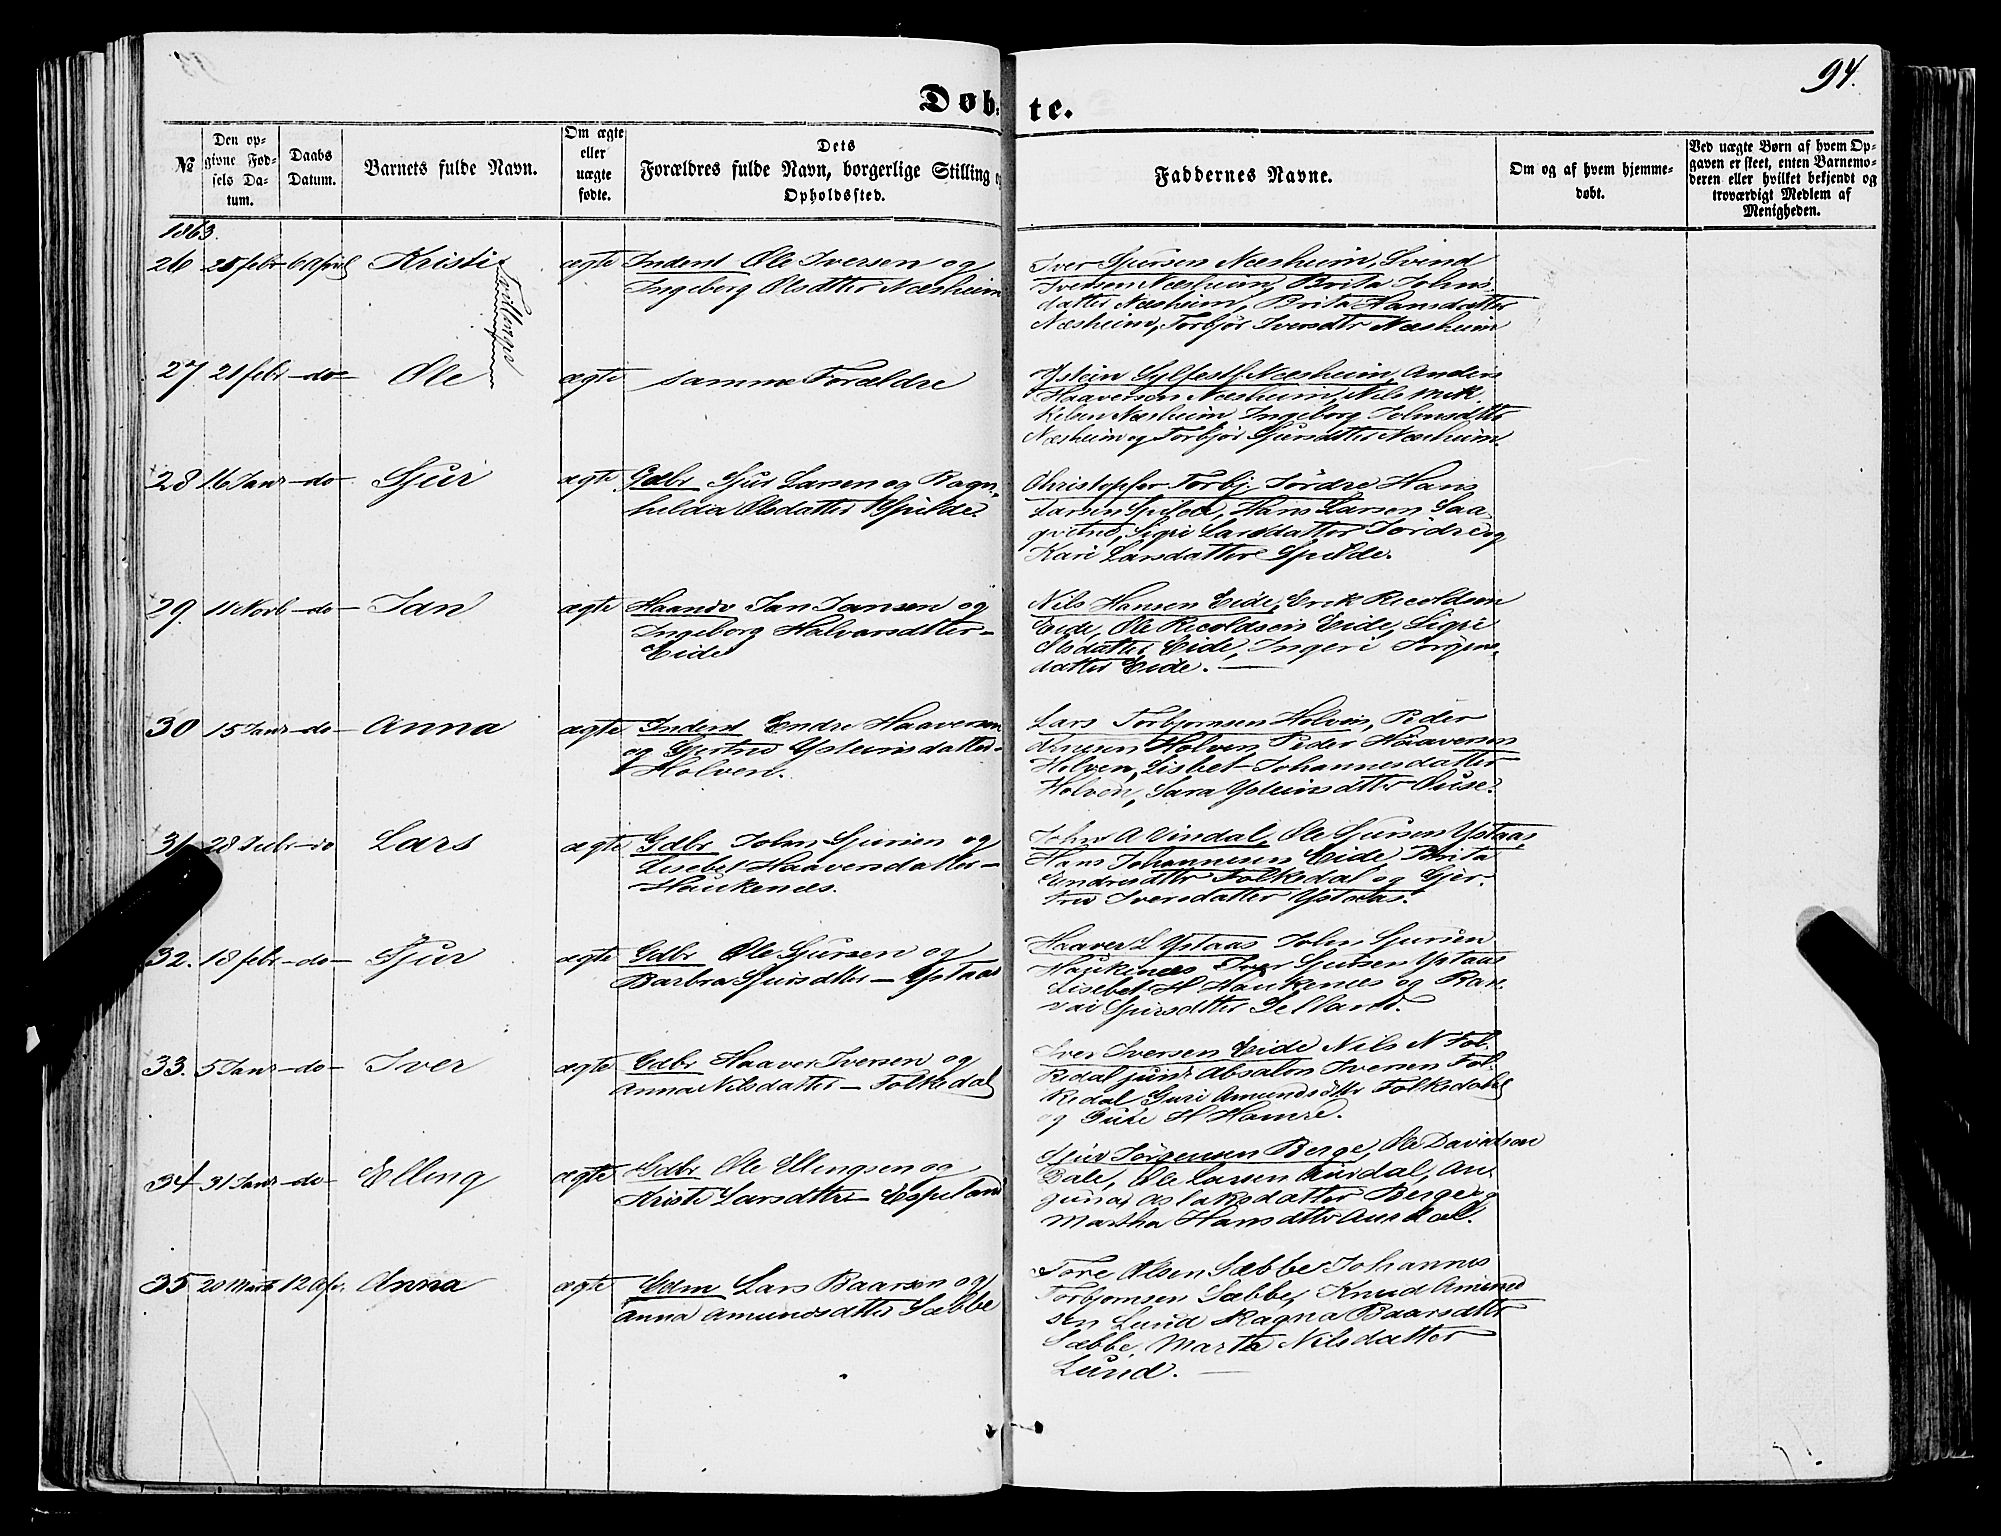 94.
Døb-te.
№
Den op-
givne Fød-
sels Da-
tum.
Daabs
Datum.
Barnets fulde Navn.
Om ægte
eller
uægte
fødte.
Dets
Forældres fulde Navn, borgerlige Stilling o
Opholdssted.
Faddernes Navne.
Om og af hvem hjemme-
døbt.
Ved uægte Børn af hvem Op-
gaven er skeet, enten Barnemo-
deren eller hvilket bekjendt og
troværdigt Medlem af
Menigheden.
1863.
26 25 febr 6 April Kristi Tvillinger ægte Inderst Ole Iversen og
Ingeborg Olsdtter Næsheim
Iver Sjursen Næsheim, Svend
Iversen Næsheim, Brita Johns-
datter Næsheim, Brita Hansdatter
Næsheim, Torbjør Iversdtr Næsheim
27 21 febr -do- Ole ægte samme Forældre
Ystein Sylfestss Næsheim, Anders
Haaversen Næsheim, Nils Mik
kelsen Næsheim, Ingeborg Johnsdtter
Næsheim og Torbjør Sjursdatter Næsheim.
28 16 Janr -do- Sjur ægte Gdbr Sjur Larsen og Ragn-
hilda Olsdatter Spilde.
Christopfer Torbj. Jørdre Hans
Larsen Spilde, Hans Larsen Saa
qvitne, Sigri Larsdatter Jørdre og
Kari Larsdatter Spilde.
29. 11 Novb -do- Jan ægte Haandv Jan Jansen og
Ingeborg Halvorsdtter-
Eide
Nils Hansen Eide, Erik Ricoldsen
Eide, Ole Ricoldsen Eide, Sigri
Olsdatter Eide, Ingeri Jørgens
datter Eide.
30 15 Janr -do- Anna ægte Inderst Endre Haaversen
og Gjertrud Ysteinsdatter-
Holven.
Lars Torbjornsen Holven, Peder
Knusen Holven, Peder Haaversen
Holven, Lisbet Johannesdatter
Holven, Sara Ysteinsdtter Ouse.
31 28 Febr -do Lars ægte Gdbr John Sjursen og
Lisebet Haaversdatter-
Haukenæs.
John A Vindal, Ole Sjursen Ystaas,
Hans Johannesen Eide, Brita
Endresdtter Folkedal og Gjer-
trud Iversdatter Ystaas.
32. 18 febr -do- Sjur ægte Gdbr Ole Sjursen og
Barbra Sjursdtter - Ystaas
Haaver L Ystaas John Sjursen
Haukenæs Iver Sjursen Ystaas
Lisebet H Haukenæs og Ran-
vai Sjursdtter Selland.
33. 5 Janr -do- Iver ægte Gdbr Haaver Iversen og
Anna Nilsdatter - Folkedal
Iver Iversen Eide Nils N Fol-
kedal junr Absalon Iversen Fol-
kedal Guri Amundsdtter Folkedal
og Guri H Hamre.
34 31 Janr -do- Elling ægte Gdbr Ole Ellingsen og
Kristi Larsdtter - Espeland
Sjur Jørgensen Berge, Ole Davidsen
Dale, Ole Larsen Aurdal, An
guna Aslaksdatter Berge og
Martha Hansdtter Aurdal.
35 20 Marts 12 Apr. Anna ægte Gdm Lars Baarsen og
Anna Amundsdtter Sæbbe
Tore Olsen Sæbbe Johannes
Torbjornsen Sæbbe, Knud Amund
sen Lund Ragna Baarsdtter
Sæbbe, Marta Nilsdatter
Lund.